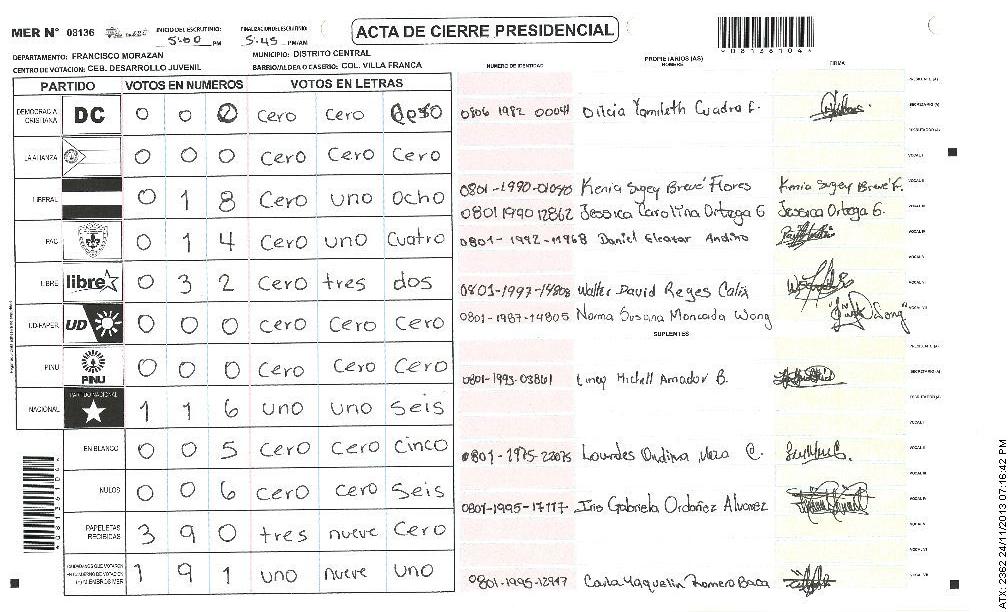 MER Nº 08136 INICIO DEL ESCRUTINIO: 5:00 PM FINALIZACION DEL ESCRUTINIO: 5:45 PM/AM
ACTA DE CIERRE PRESIDENCIAL
DEPARTAMENTO: FRANCISCO MORAZAN MUNICIPIO: DISTRITO CENTRAL
CENTRO DE VOTACION: CEB. DESARROLLO JUVENIL BARRIO/ALDEA O CASERIO: COL. VILLA FRANCA
NUMERO DE IDENTIDAD PROPIETARIOS (AS) NOMBRE FIRMA
PARTIDO VOTOS EN NUMEROS VOTOS EN LETRAS
DEMOCRACIA CRISTIANA DC 0 0 0 cero cero
0806 1982 00041 Dilcia Yamileth Cuadra F.
LA ALIANZA 0 0 0 cero cero cero
LIBERAL 0 1 8 cero uno ocho
0801-1990-01040 Kenia Sugey Brevé Flores Kenia Sugey Brevé F.
0801 1990 12862 Jessica Carolina Ortega G Jessica Ortega G.
PAC 0 1 4 cero uno cuatro
0801-1992-11968 Daniel Eleazar Andino
LIBRE libre 0 3 2 cero tres dos
0801-1997-14808 Walter David Reyes Calix
UD-FAPER UD 0 0 0 cero cero cero
0801-1987-14805 Norma Susana Moncada Wong
SUPLENTES
PINU PINU 0 0 0 cero cero cero
0801-1993-03861 Michell Amador B.
NACIONAL PARTIDO NACIONAL 1 1 6 uno uno seis
EN BLANCO 0 0 5 cero cero cinco
0801-1975-22075 Lourdes Ondina Meza C.
NULOS 0 0 6 cero cero seis
0801-1995-17117 Iris Gabriela Ordoñez Alvarez
PAPELETAS RECIBIDAS 3 9 0 tres nueve cero
CIUDADANOS QUE VOTARON 1 9 1 uno nueve uno
0801-1995-12917 Carla Yaquelin Romero Baca
ATX 2362 24/11/2013 07:16:42 PM